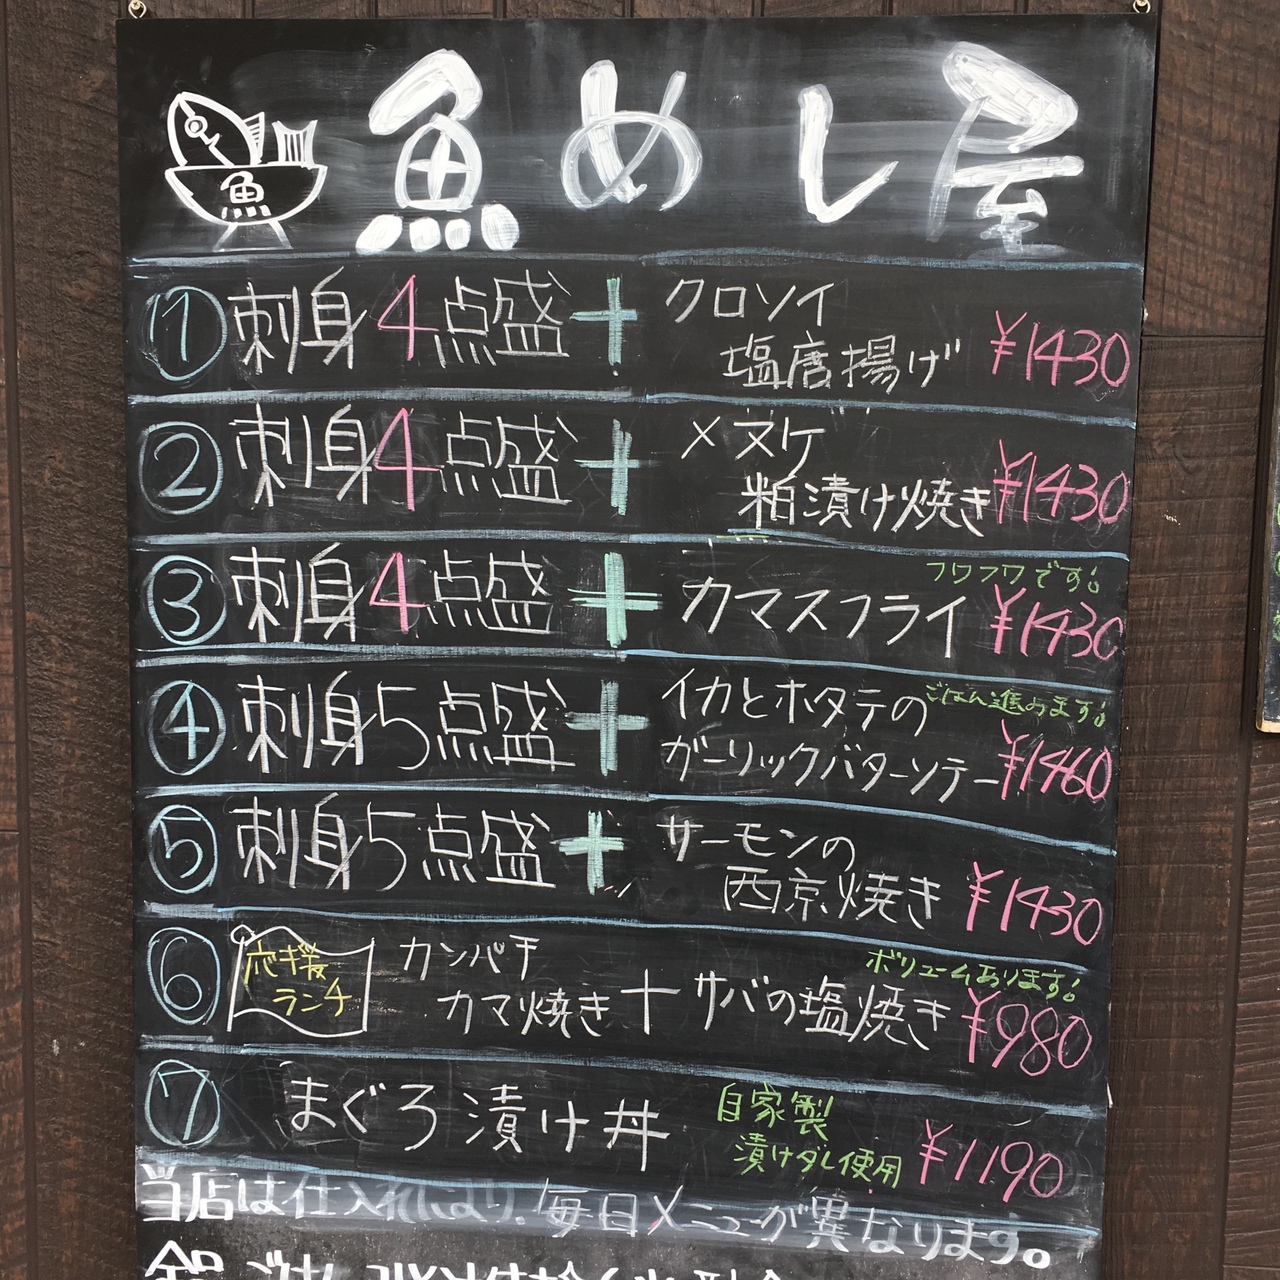 魚めし屋
魚
① 刺身4点盛 + クロソイ
塩唐揚げ ¥1430
② 刺身4点盛 + メヌケ
粕漬け焼き ¥1430
フワフワです!
③ 刺身4点盛 + カマスフライ ¥1430
④ 刺身5点盛 + イカとホタテの ごはん進みます!
ガーリックバターソテー ¥1460
⑤ 刺身5点盛 + サーモンの
西京焼き ¥1430
⑥ 応援 カンパチ ボリュームあります!
ランチ カマ焼き + サバの塩焼き ¥980
⑦ まぐろ漬け丼 自家製
漬けダレ使用 ¥1190
当店は仕入れにより、毎日メニューが異なります。